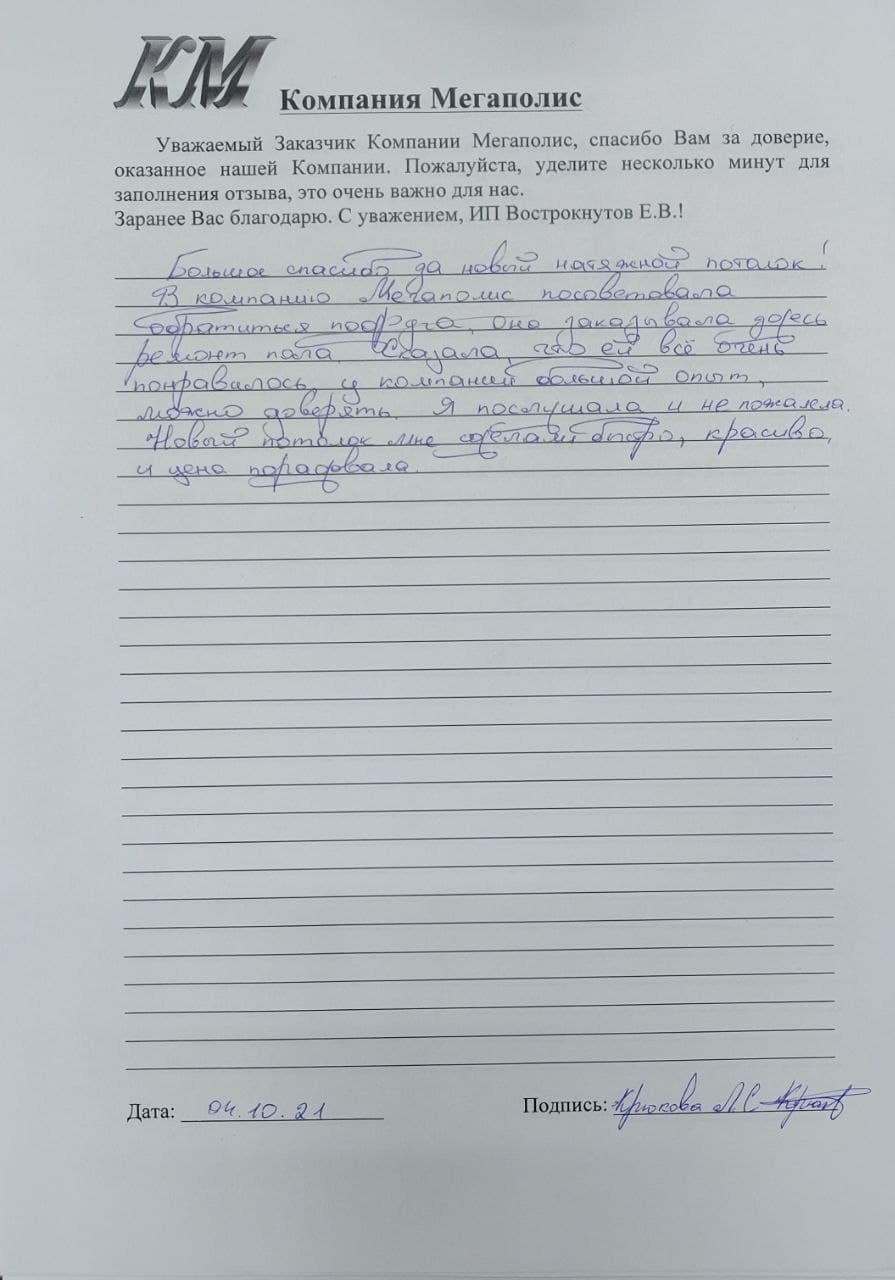 КМ
Компания Мегаполис
Уважаемый Заказчик Компании Мегаполис, спасибо Вам за доверие,
оказанное нашей Компании. Пожалуйста, уделите несколько минут для
заполнения отзыва, это очень важно для нас.
Заранее Вас благодарю. С уважением, ИП Вострокнутов Е.В.!
Большое спасибо за новый натяжной потолок!
В компанию Мегаполис посоветовала
обратиться подруга, она заказывала здесь
ремонт пола. Сказала, что ей всё очень
понравалось, у компаний большой опыт,
можно доверять. Я послушала и не пожалела.
Новый потолок мне сделали быстро, красиво,
и цена порадовала.
Дата: 04.10.21
Подпись: Крюкова Л.С